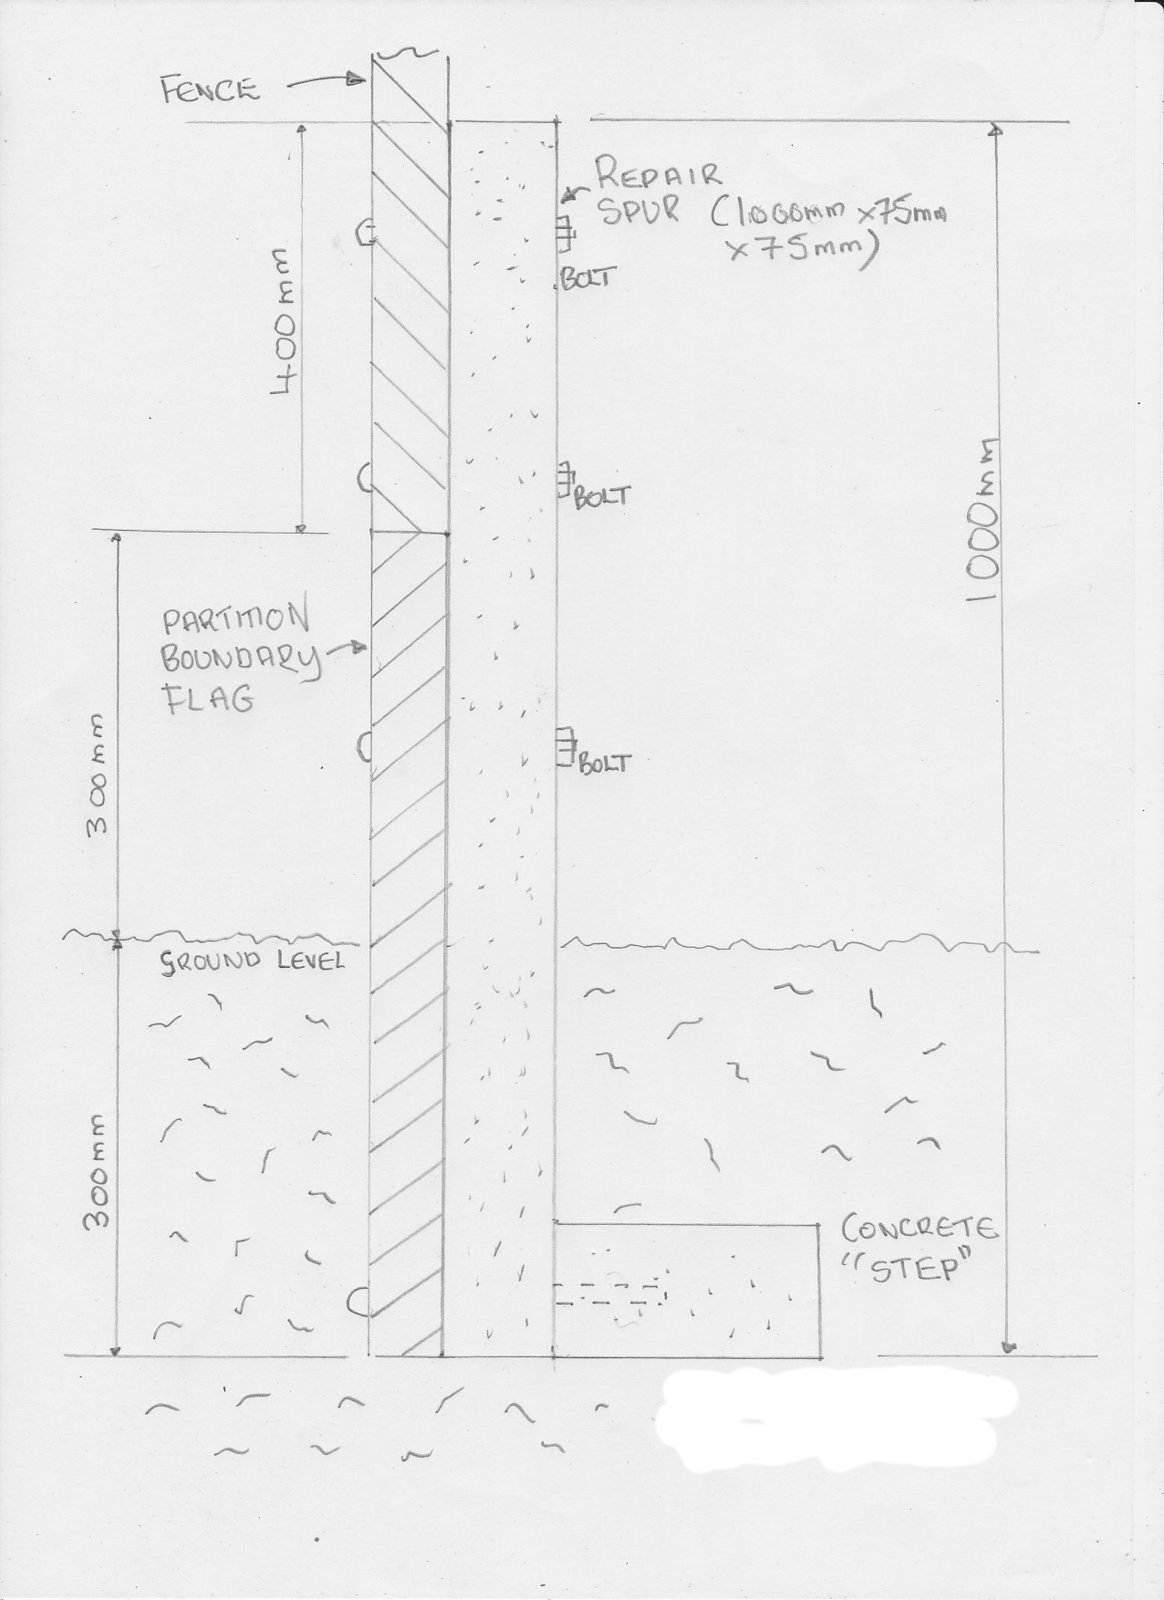 FENCE
REPAIR
SPUR (1000mm x75mm
x75mm)
BOLT
400mm
BOLT
1000mm
PARTITION
BOUNDARY
FLAG
300mm
BOLT
GROUND LEVEL
300mm
CONCRETE
"STEP"